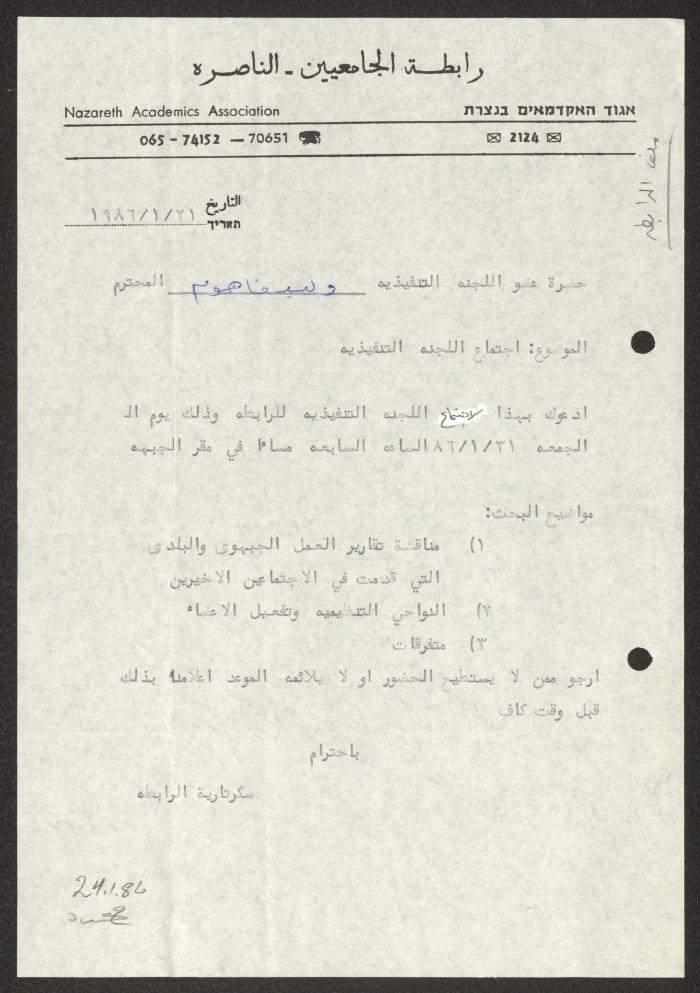 رابطة الجامعيين - الناصره
Nazareth Academics Association
אגוד האקדמאים בנצרת
065 - 74152 — 70651 ☎
✉ 2124 ✉
ملف الرابطه
التاريخ
תאריך
١٩٨٦/١/٢١
حضرة عضو اللجنه التنفيذيه وليد فاهوم المحترم
الموضوع: اجتماع اللجنه التنفيذيه
ادعوك بهذا لاجتماع اللجنه التنفيذيه للرابطه وذلك يوم الـ
الجمعه ٨٦/١/٣١ الساعه السابعه مساءا في مقر الجبهه
مواضيع البحث:
١) مناقشة تقارير العمل الجبهوي والبلدي
التي قدمت في الاجتماعين الاخيرين
٢) النواحي التنظيميه وتفعيل الاعضاء
٣) متفرقات
ارجو ممن لا يستطيع الحضور او لا يلائمه الموعد اعلامنا بذلك
قبل وقت كاف
باحترام
سكرتارية الرابطه
24.1.86